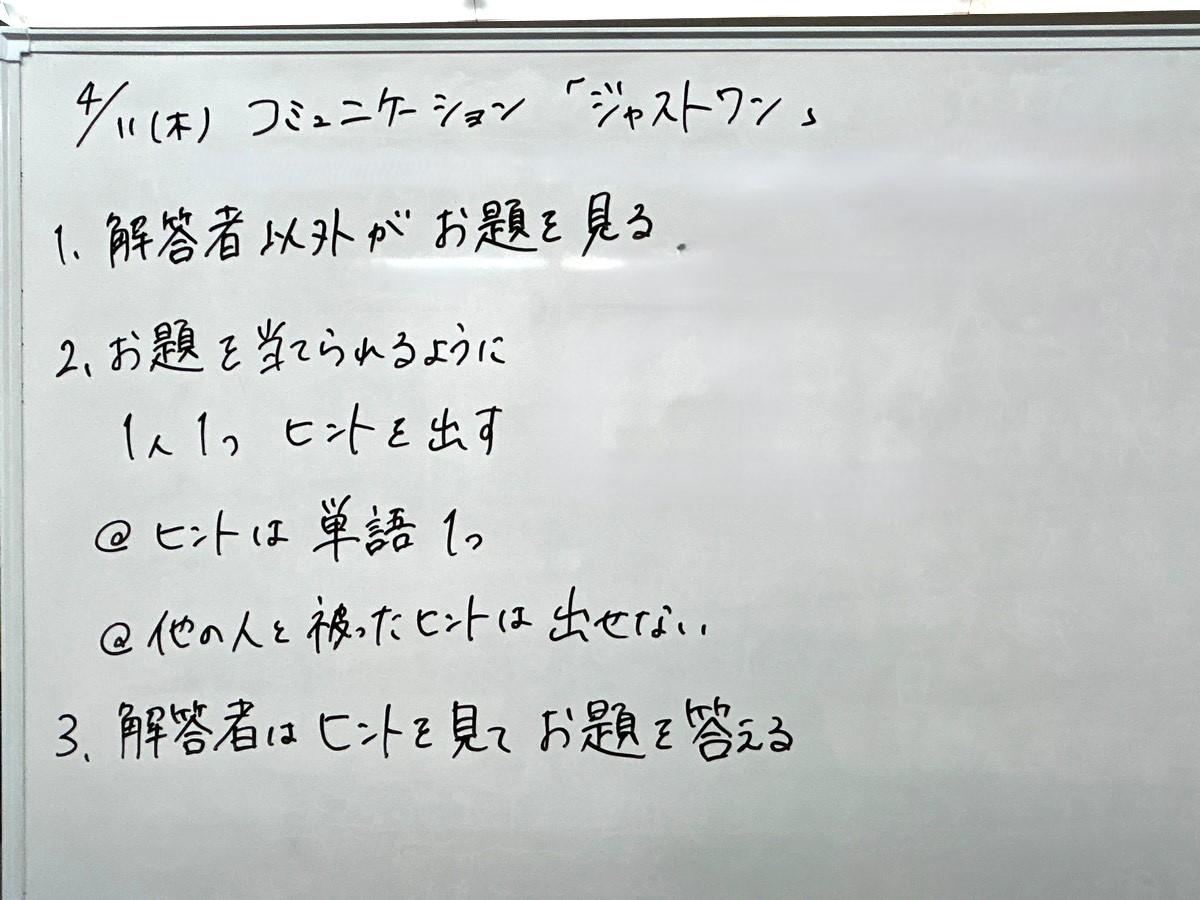 4/11(木) コミュニケーション 「ジャストワン」
1. 解答者以外がお題を見る
2. お題を当てられるように
1人1つ ヒントを出す
@ ヒントは 単語1つ
@ 他の人と被ったヒントは 出せない
3. 解答者はヒントを見てお題を答える